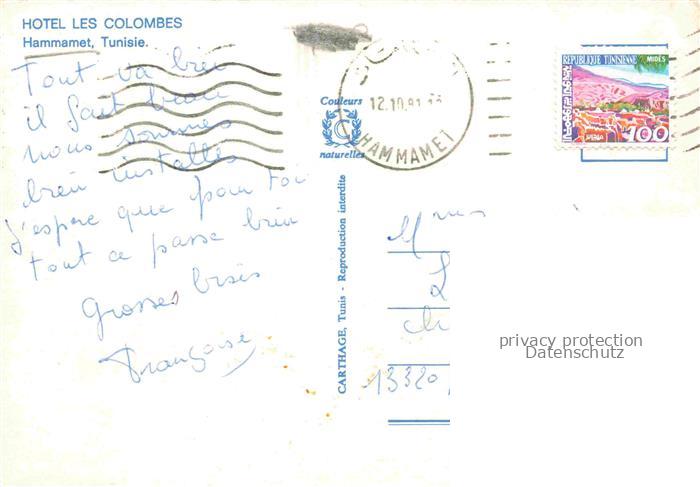 HOTEL LES COLOMBES
Hammamet, Tunisie.
Tout va bien
il fait beau
nous sommes
bien installés
J'espère que pour toi
tout ce passe bien
Grosses bises
Françoise
Couleurs
C
naturelles
CARTHAGE, Tunis - Reproduction interdite
12.10.81
HAMMAMET
REPUBLIQUE TUNISIENNE
MIDES
100
13320
privacy protection
Datenschutz